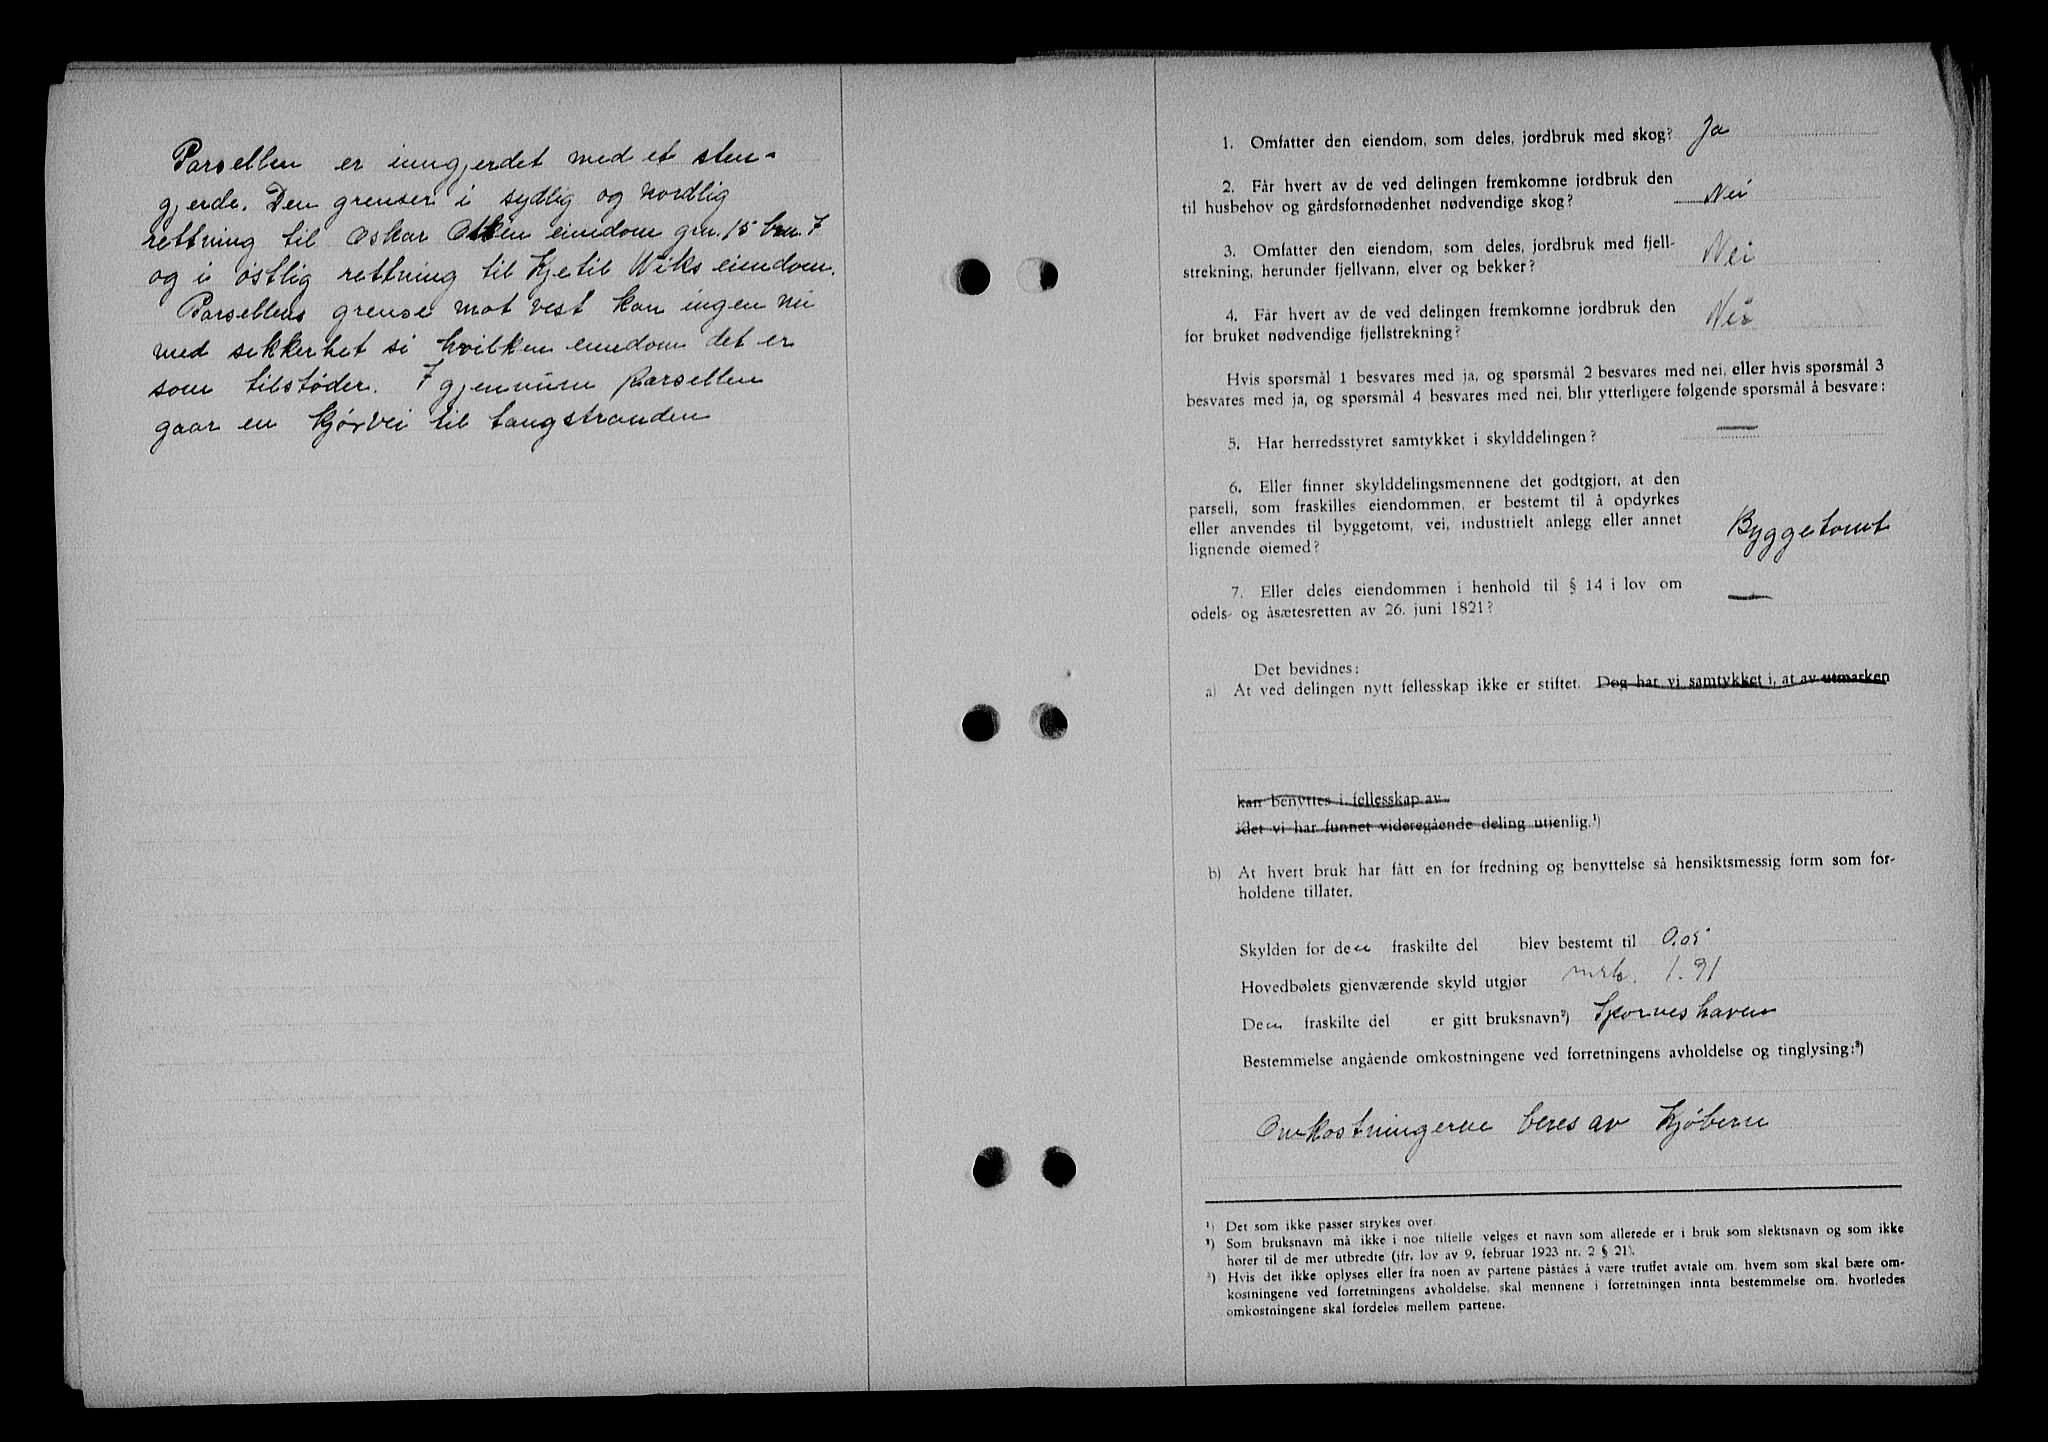 Parsellen er inngjerdet med et sten-
gjerde. Den grenser i sydlig og nordlig
rettning til Oskar eiendom grn. 15 brn. 7
og i østlig rettning til Kjetil Wiks eiendom.
Parsellens grense mot vest kan ingen nu
med sikkerhet si hvilken eiendom det er
som tilstøder. I gjennum parsellen
gaar en kjørvei til tangstranden
1. Omfatter den eiendom, som deles, jordbruk med skog? Ja
2. Får hvert av de ved delingen fremkomne jordbruk den
til husbehov og gårdsfornødenhet nødvendige skog? Nei
3. Omfatter den eiendom, som deles, jordbruk med fjell-
strekning, herunder fjellvann, elver og bekker? Nei
4. Får hvert av de ved delingen fremkomne jordbruk den
for bruket nødvendige fjellstrekning? Nei
Hvis spørsmål 1 besvares med ja, og spørsmål 2 besvares med nei, eller hvis spørsmål 3
besvares med ja, og spørsmål 4 besvares med nei, blir ytterligere følgende spørsmål å besvare:
5. Har herredsstyret samtykket i skylddelingen? —
6. Eller finner skylddelingsmennene det godtgjort, at den
parsell, som fraskilles eiendommen, er bestemt til å opdyrkes
eller anvendes til byggetomt, vei, industrielt anlegg eller annet
lignende øiemed? Byggetomt
7. Eller deles eiendommen i henhold til § 14 i lov om
odels- og åsætesretten av 26. juni 1821? —
Det bevidnes:
a) At ved delingen nytt fellesskap ikke er stiftet. Dog har vi samtykket i, at av utmarken
kan benyttes i fellesskap av
idet vi har funnet videregående deling utjenlig.¹)
b) At hvert bruk har fått en for fredning og benyttelse så hensiktsmessig form som for-
holdene tillater.
Skylden for den fraskilte del blev bestemt til 0.05
Hovedbølets gjenværende skyld utgjør mrk. 1.91
Den fraskilte del er gitt bruksnavn²)
Bestemmelse angående omkostningene ved forretningens avholdelse og tinglysing:³)
Omkostningerne beres av Kjøberne
¹) Det som ikke passer strykes over.
²) Som bruksnavn må ikke i noe tilfelle velges et navn som allerede er i bruk som slektsnavn og som ikke
hører til de mer utbredte (jfr. lov av 9. februar 1923 nr. 2 § 21).
³) Hvis det ikke oplyses eller fra noen av partene påståes å være truffet avtale om, hvem som skal bære om-
kostningene ved forretningens avholdelse, skal mennene i forretningen innta bestemmelse om, hvorledes
omkostningene skal fordeles mellem partene.